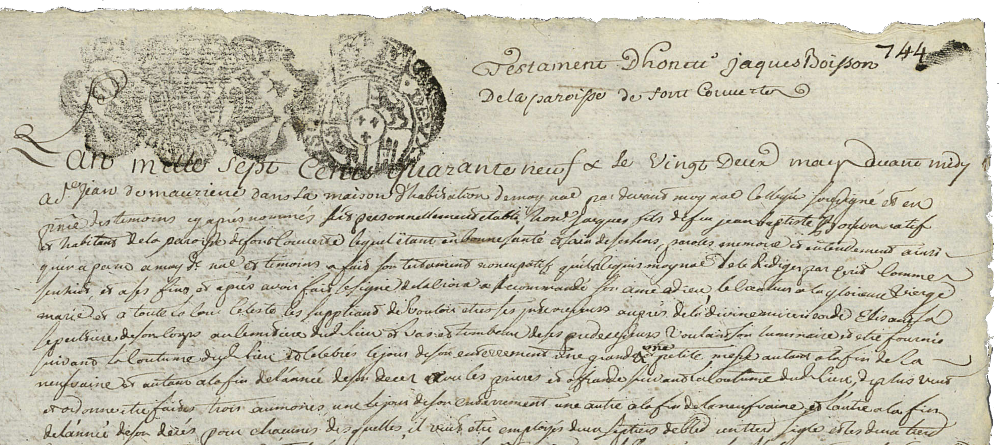 744
Testament Dhoneur jaques Boisson
De la paroisse de font Couverte
Lan mille sept Cents quarante neuf & le vingt Deux may avant midy
A St Jean de maurienne dans la maison d'habitation de moy nore pardevant moy nore Collegié soussigné et en
pnce des temoins cy apres nommés s'est personnellement etabli hon. Jacques fils de feu jean Baptiste Boisson natif
et habitant de la paroisse de fontCouverte lequel étant en bonne santé et sain de ses sens, parolles memoire et entendement ainsi
qu'il a paru a moy dt nore et temoins a fait son testament noncupatif qu'il requis moy nore de le rediger par ecrit comme
s'ensuit, et a ses fins et apres avoir fait le signe de la Croix a recommandé son ame a dieu le Createur a la glorieuse vierge
marie et a toute la Cour Celeste les suppliant de vouloir etre ses intercesseurs aupres de la divine misericorde Elisant la
sepulture de son corps au cimetiere du lieu et vas et tombeau de ses predecesseurs voulant son luminaire etre fournis
suivant la Coutume dudt lieu et celebrer le jour de son enterrement une grande & une petite messe autant a la fin de la
neufvaine et autant a la fin de l'année de son decez avec les prieres et offrande suivant la Coutume du lieu, de plus veut
et ordonne etre faites trois aumones, une le jour de son enterrement une autre a la fin de la neufvaine et l'autre a la fin
de l'année de son decès, pour chacunes desquelles il veut etre employé deux septiers de bled un tier sigle et les deux tiers